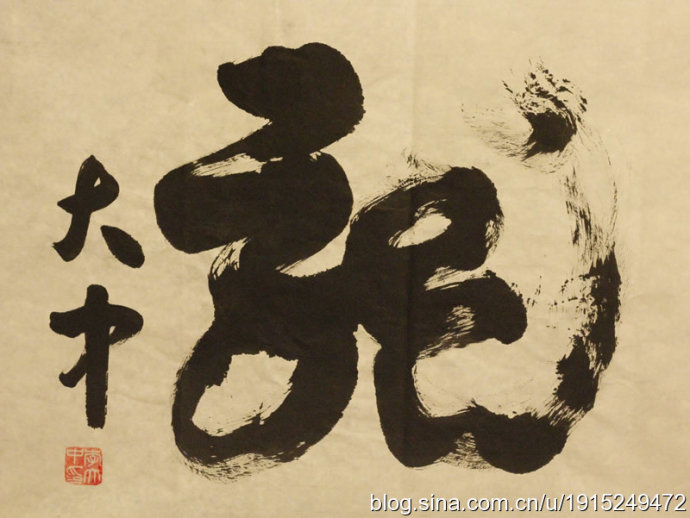 龍
大中
李大中印
blog.sina.com.cn/u/1915249472